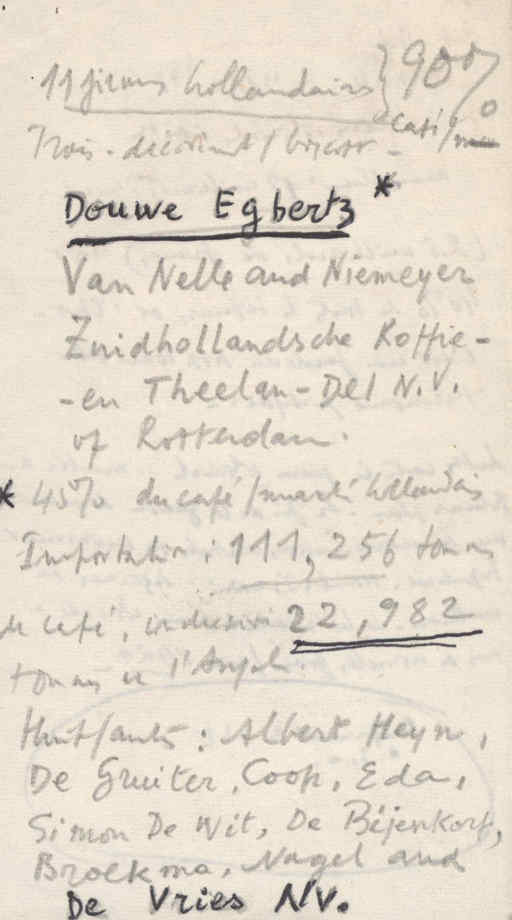 11 firmes hollandaises } 90%
café/
Trois
Douwe Egbertz *
Van Nelle and Niemeyer
Zuidhollandsche Koffie-
-en Theelan-Del N.V.
of Rotterdam.
* 45% du café/marché hollandais
Importation: 111,256 tonnes
de café, inclusivi 22,982
tonnes de l'Angola
Huit/autres: Albert Heyn,
De Gruiter, Coop, Eda,
Simon De Wit, De Bijenkorf,
Broekma, Nagel and
De Vries NV.